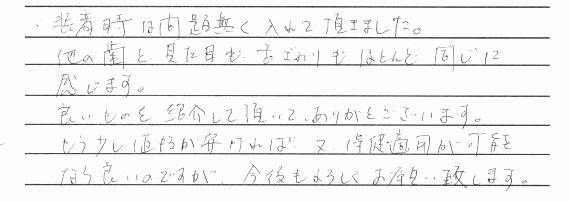 ・装着時は問題無く入れて頂きました。
他の歯と見た目も舌ざわりもほとんど同じに
感じます。
良いものを紹介して頂いて、ありがとうございます。
もう少し値段が安ければ又保健適用が可能
なら良いのですが、今後もよろしくお願い致します。